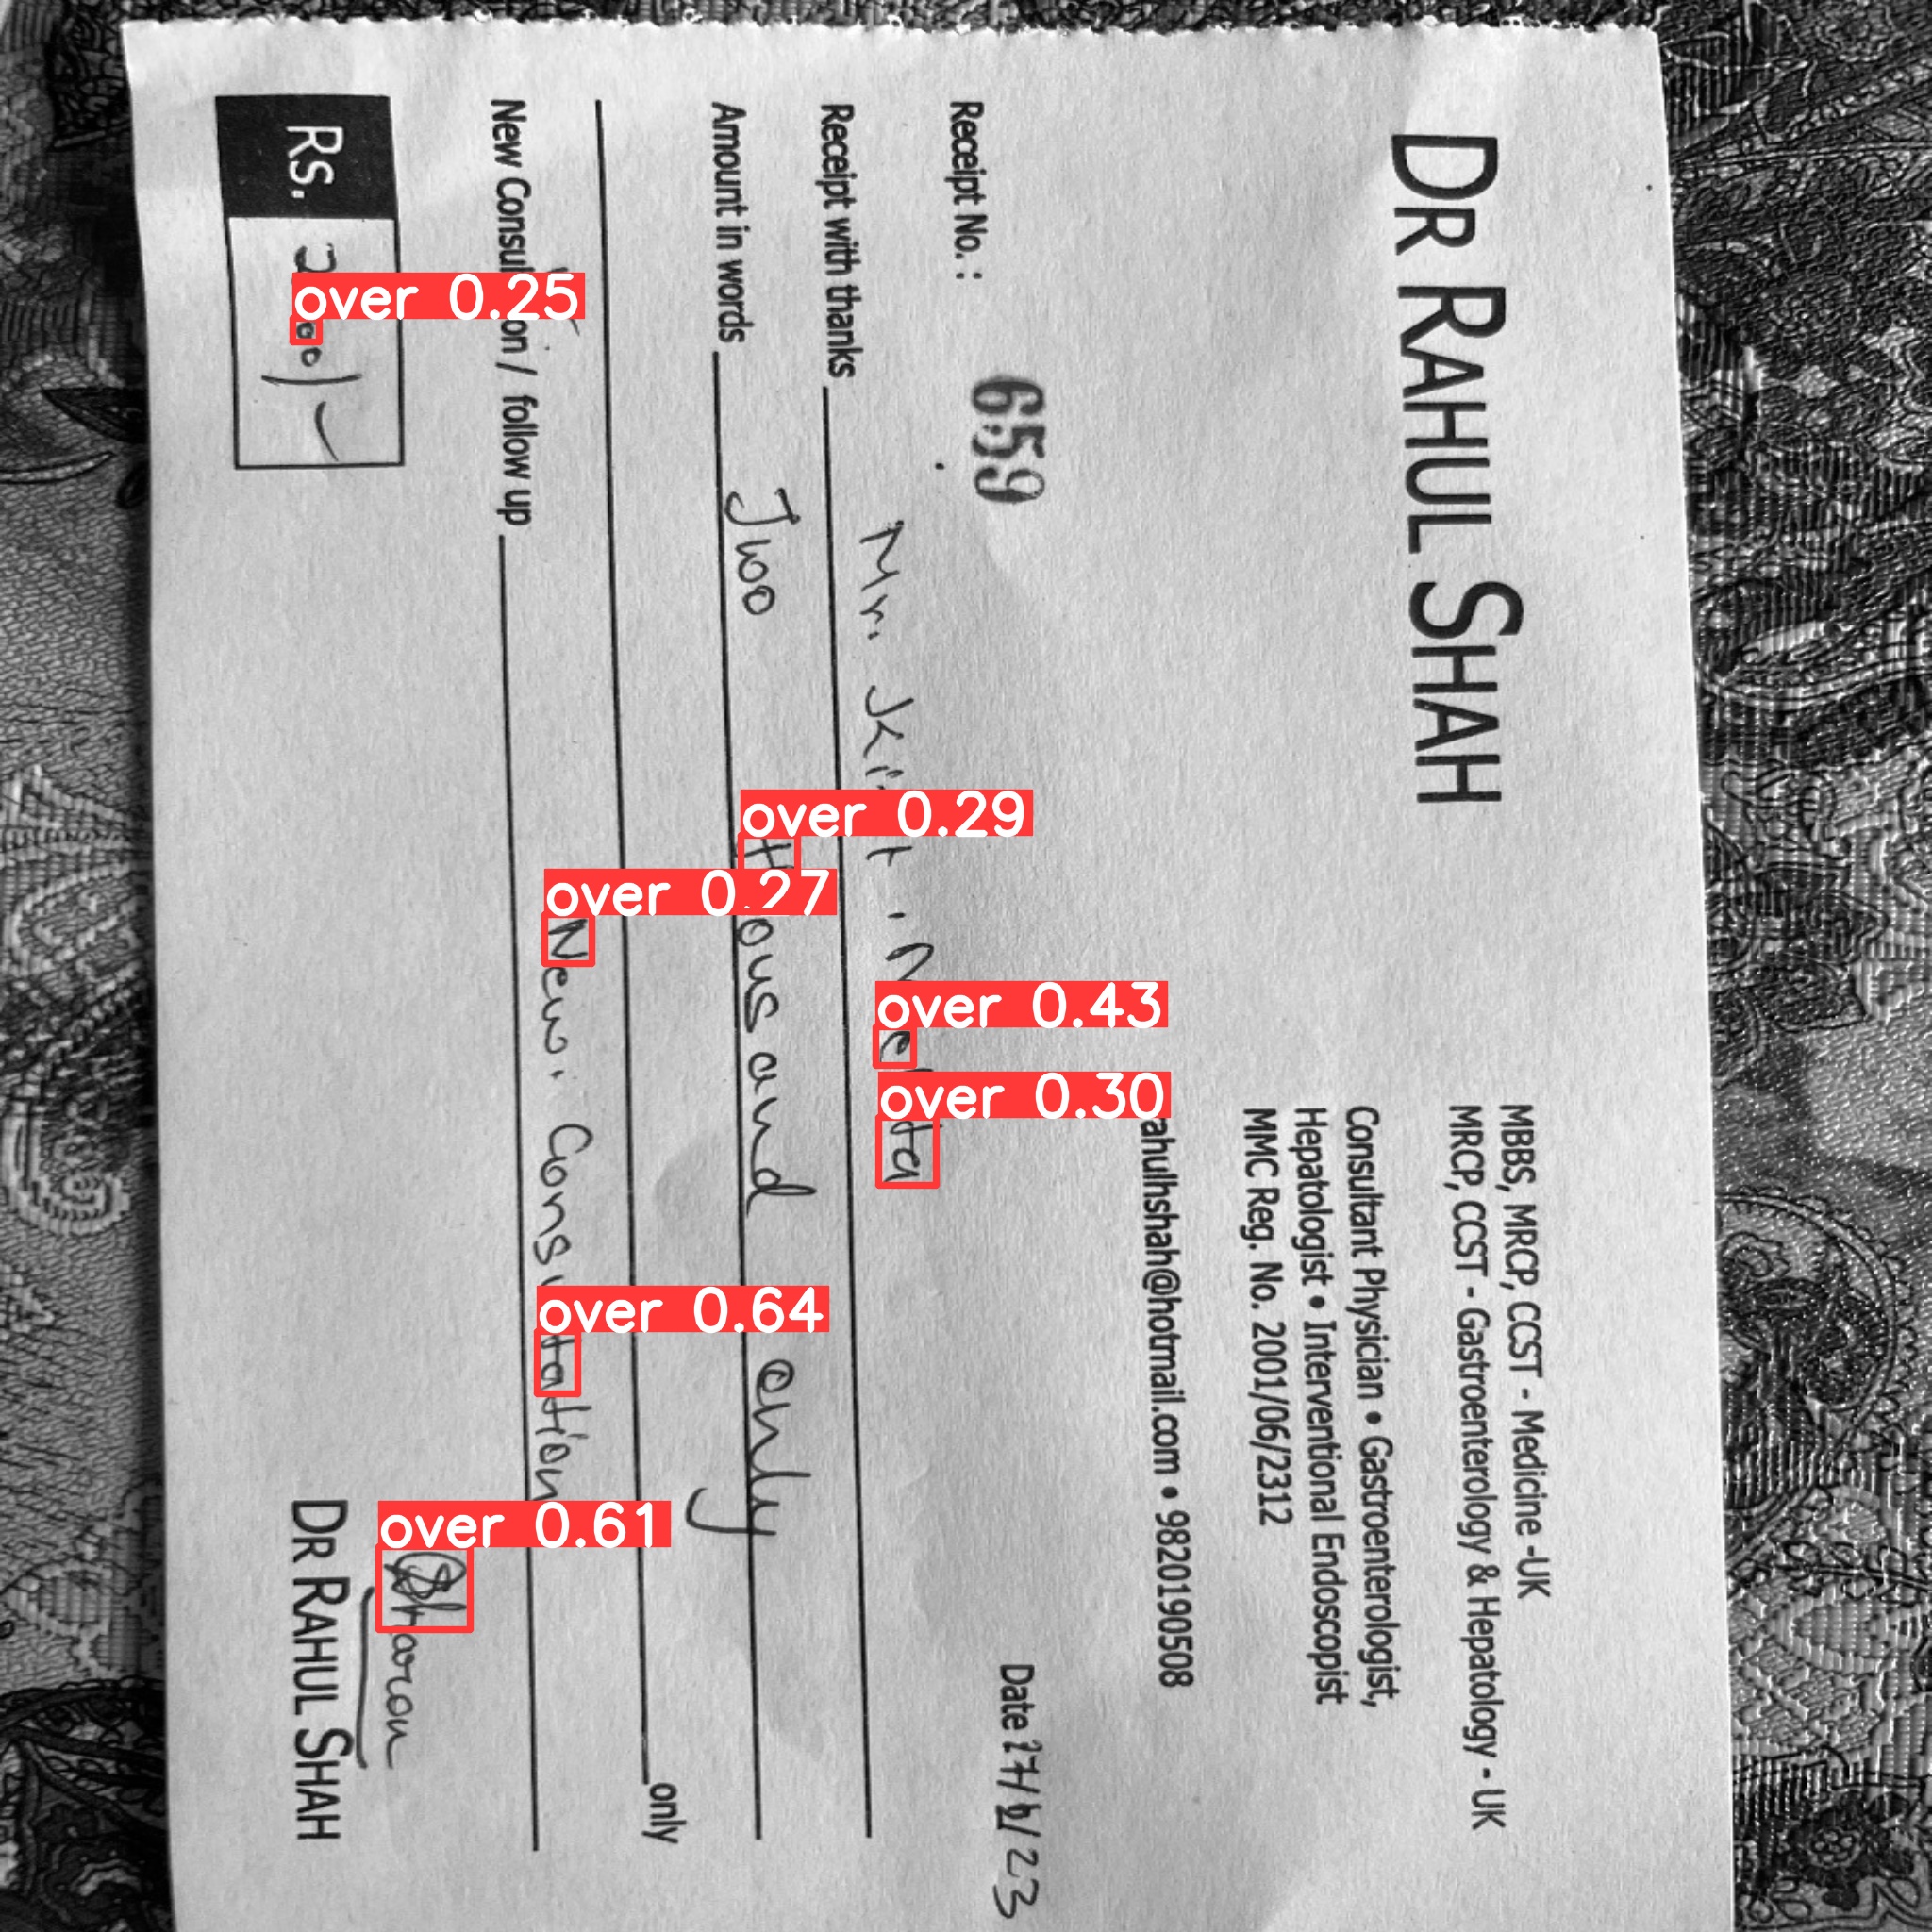 DR RAHUL SHAH
MBBS, MRCP, CCST - Medicine -UK
MRCP, CCST - Gastroenterology & Hepatology - UK
Consultant Physician • Gastroenterologist,
Hepatologist • Interventional Endoscopist
MMC Reg. No. 2001/06/2312
ahulhshah@hotmail.com • 9820190508
Receipt No. : 659
Date /23
Receipt with thanks Mr.
Amount in words Two ousand only
only
New Consul on / follow up New. Cons tation
Rs.
Sharon
DR RAHUL SHAH
over 0.25
over 0.29
over 0.27
over 0.43
over 0.30
over 0.64
over 0.61